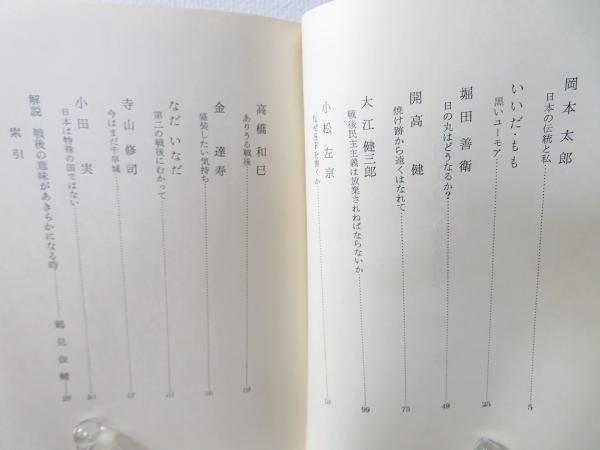 岡本太郎
日本の伝統と私 5
いいだ・もも
黒いユーモア 25
堀田善衛
日の丸はどうなるか? 49
開高 健
焼け跡から遠くはなれて 75
大江健三郎
戦後民主主義は放棄されねばならないか 99
小松左京
なぜSFを書くか
高橋和巳
ありうる戦後
金 達寿
盛装したい気持ち
なだいなだ
第二の戦後にむかって
寺山修司
今はまだ千早城
小田 実
日本は特殊の国ではない
解説 戦後の意味があきらかになる時 鶴見俊輔
索引